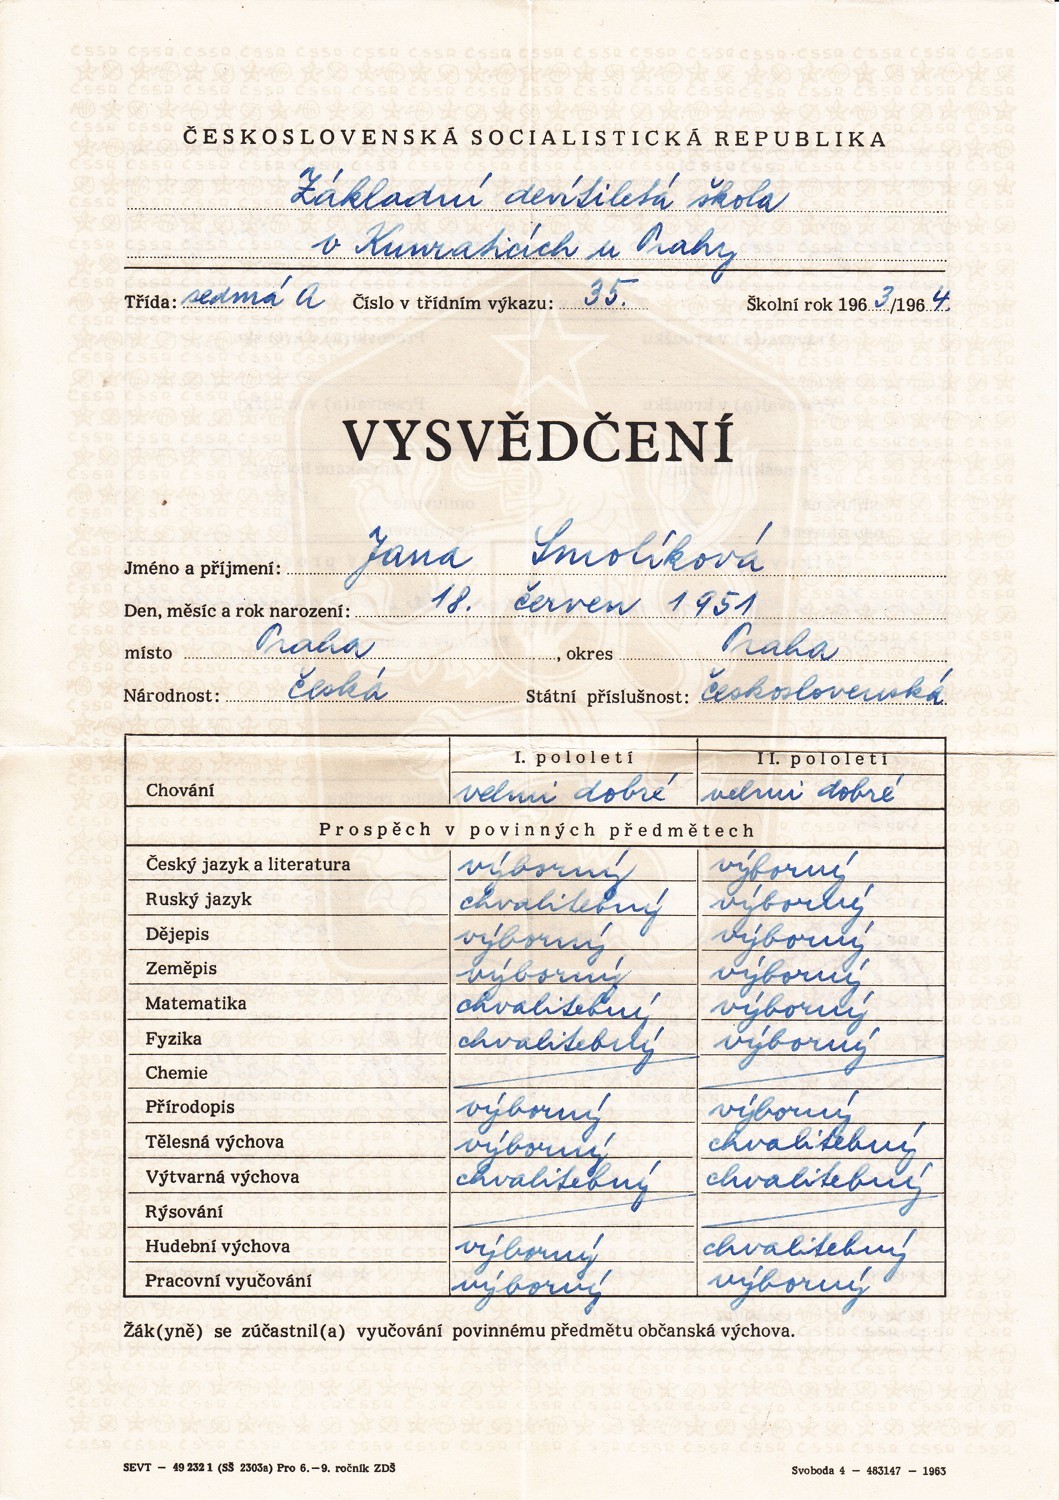 ČESKOSLOVENSKÁ SOCIALISTICKÁ REPUBLIKA
Základní devítiletá škola
v Kunraticích u Prahy
Třída: sedmá A Číslo v třídním výkazu: 35. Školní rok 1963/1964.
VYSVĚDČENÍ
Jméno a příjmení: Jana Smolíková
Den, měsíc a rok narození: 18. červen 1951
místo Praha, okres Praha
Národnost: česká Státní příslušnost: československá
I. pololetí II. pololetí
Chování velmi dobré velmi dobré
Prospěch v povinných předmětech
Český jazyk a literatura výborný výborný
Ruský jazyk chvalitebný výborný
Dějepis výborný výborný
Zeměpis výborný výborný
Matematika chvalitebný výborný
Fyzika chvalitebný výborný
Chemie
Přírodopis výborný výborný
Tělesná výchova výborný chvalitebný
Výtvarná výchova chvalitebný chvalitebný
Rýsování
Hudební výchova výborný chvalitebný
Pracovní vyučování výborný výborný
Žák(yně) se zúčastnil(a) vyučování povinnému předmětu občanská výchova.
SEVT — 49 232 1 (SŠ 2303a) Pro 6.—9. ročník ZDŠ Svoboda 4 — 483147 — 1963